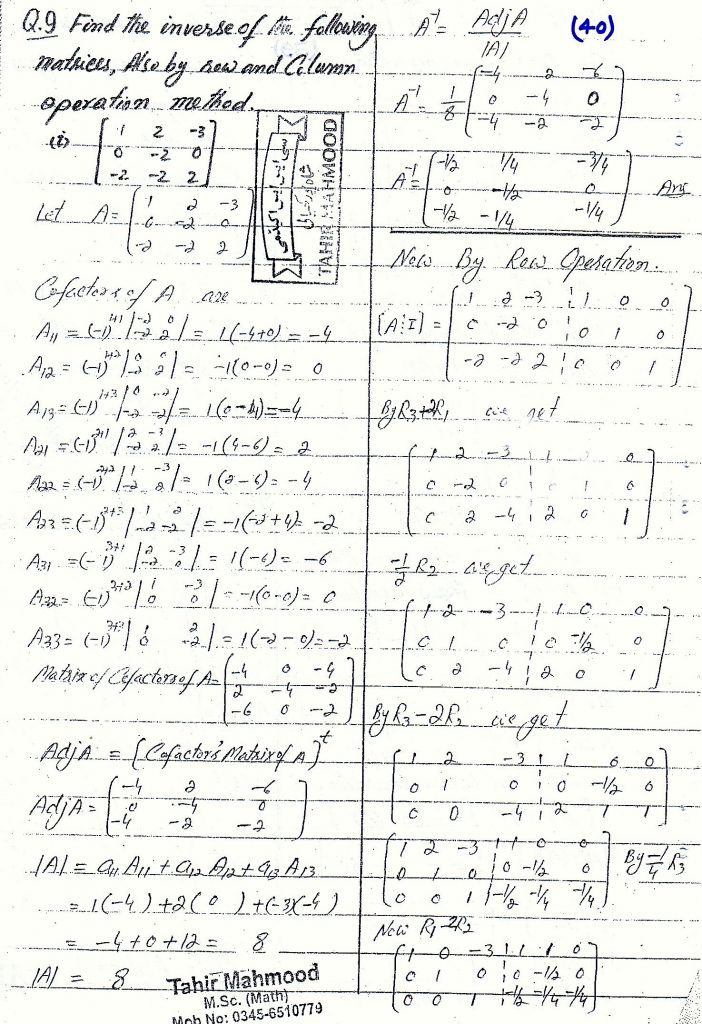 Q.9 Find the inverse of the following
matrices, Also by row and Column
operation method.
(i) [ 1 2 -3
0 -2 0
-2 -2 2 ]
Let A = [ 1 2 -3
0 -2 0
-2 -2 2 ]
سی ایس ایس اکیڈمی
TAHIR MAHMOOD
Cofactors of A are
A11 = (-1)^1+1 | -2 0 / -2 2 | = 1(-4+0) = -4
A12 = (-1)^1+2 | 0 0 / -2 2 | = -1(0-0) = 0
A13 = (-1)^1+3 | 0 -2 / -2 -2 | = 1(0-4) = -4
A21 = (-1)^2+1 | 2 -3 / -2 2 | = -1(4-6) = 2
A22 = (-1)^2+2 | 1 -3 / -2 2 | = 1(2-6) = -4
A23 = (-1)^2+3 | 1 2 / -2 -2 | = -1(-2+4) = -2
A31 = (-1)^3+1 | 2 -3 / -2 0 | = 1(-6) = -6
A32 = (-1)^3+2 | 1 -3 / 0 0 | = -1(0-0) = 0
A33 = (-1)^3+3 | 1 2 / 0 -2 | = 1(-2-0) = -2
Matrix of Cofactors of A = [ -4 0 -4
2 -4 -2
-6 0 -2 ]
Adj A = [Cofactor's Matrix of A]^t
Adj A = [ -4 2 -6
0 -4 0
-4 -2 -2 ]
|A| = a11 A11 + a12 A12 + a13 A13
= 1(-4) + 2(0) + (-3)(-4)
= -4 + 0 + 12 = 8
|A| = 8
Tahir Mahmood
M.Sc. (Math)
Mob No: 0345-6510779
A^-1 = Adj A / |A|
(40)
A^-1 = 1/8 [ -4 2 -6
0 -4 0
-4 -2 -2 ]
A^-1 = [ -1/2 1/4 -3/4
0 -1/2 0
-1/2 -1/4 -1/4 ] Ans
Now By Row Operation.
[A¦I] = [ 1 2 -3 ¦ 1 0 0
0 -2 0 ¦ 0 1 0
-2 -2 2 ¦ 0 0 1 ]
By R3+2R1 we get
[ 1 2 -3 ¦ 1 0
0 -2 0 ¦ 1 0
0 2 -4 ¦ 2 0 1 ]
-1/2 R2 we get
[ 1 2 -3 ¦ 1 0 0
0 1 0 ¦ 0 -1/2 0
0 2 -4 ¦ 2 0 1 ]
By R3-2R2 we get
[ 1 2 -3 ¦ 1 0 0
0 1 0 ¦ 0 -1/2 0
0 0 -4 ¦ 2 1 1 ]
[ 1 2 -3 ¦ 1 0 0
0 1 0 ¦ 0 -1/2 0
0 0 1 ¦ -1/2 -1/4 -1/4 ] By -1/4 R3
Now R1-2R2
[ 1 0 -3 ¦ 1 1 0
0 1 0 ¦ 0 -1/2 0
0 0 1 ¦ -1/2 -1/4 -1/4 ]